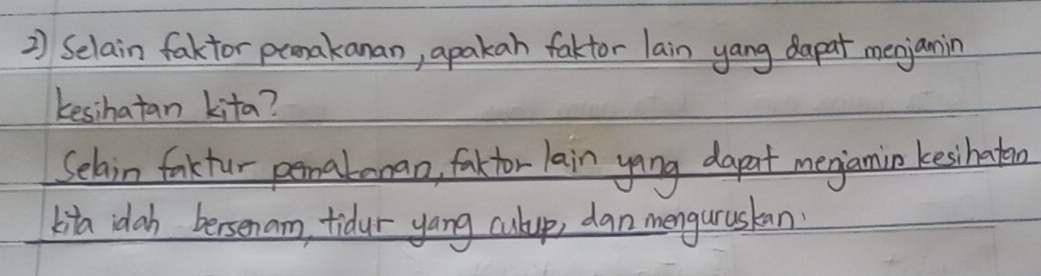 2) Selain faktor pemakanan, apakah faktor lain yang dapat menjamin
kesihatan kita?
Selain faktur pemakanan, faktor lain yang dapat menjamin kesihatan
kita idah bersenam, tidur yang cukup, dan menguruskan.